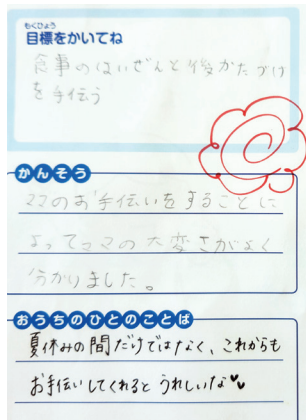 もくひょう
目標をかいてね
食事のはいぜんと後かたづけ
を手伝う
かんそう
ママのお手伝いをすることに
よってママの大変さがよく
分かりました。
おうちのひとのことば
夏休みの間だけではなく、これからも
お手伝いしてくれると うれしいな♥♥